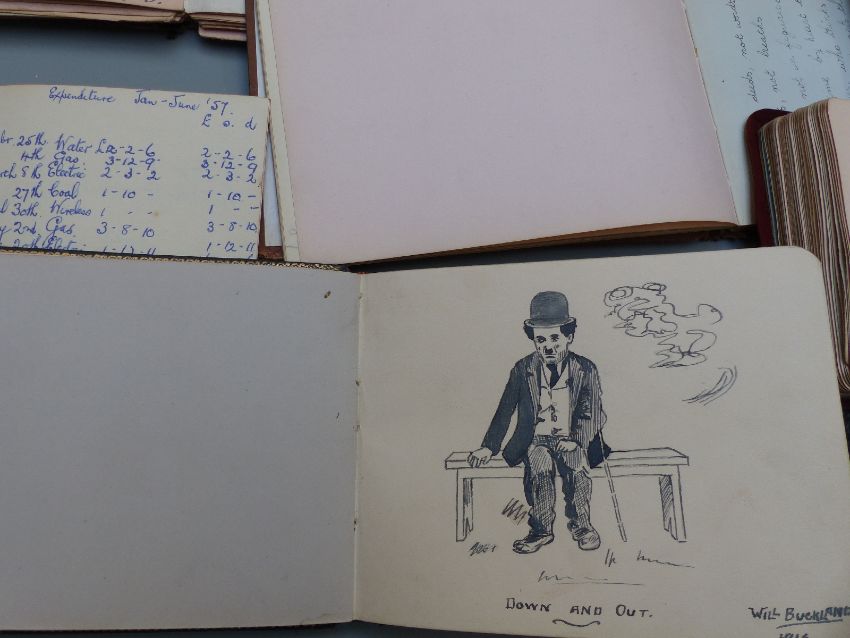 Expenditure Jan - June '57.
£ s. d
25th. Water £2-2-6 2-2-6
4th Gas. 3-12-9. 3-12-9
8th Electric 2-3-2 2-3-2
27th Coal 1-10- 1-10-
30th. Wireless 1 - - 1 - -
2nd. Gas 3-8-10 3-8-10
Electric 1-12-11 1-12-11
deeds, not words
not breaths
not in figures
by heart
who thinks
Down and Out.
Will Buckland